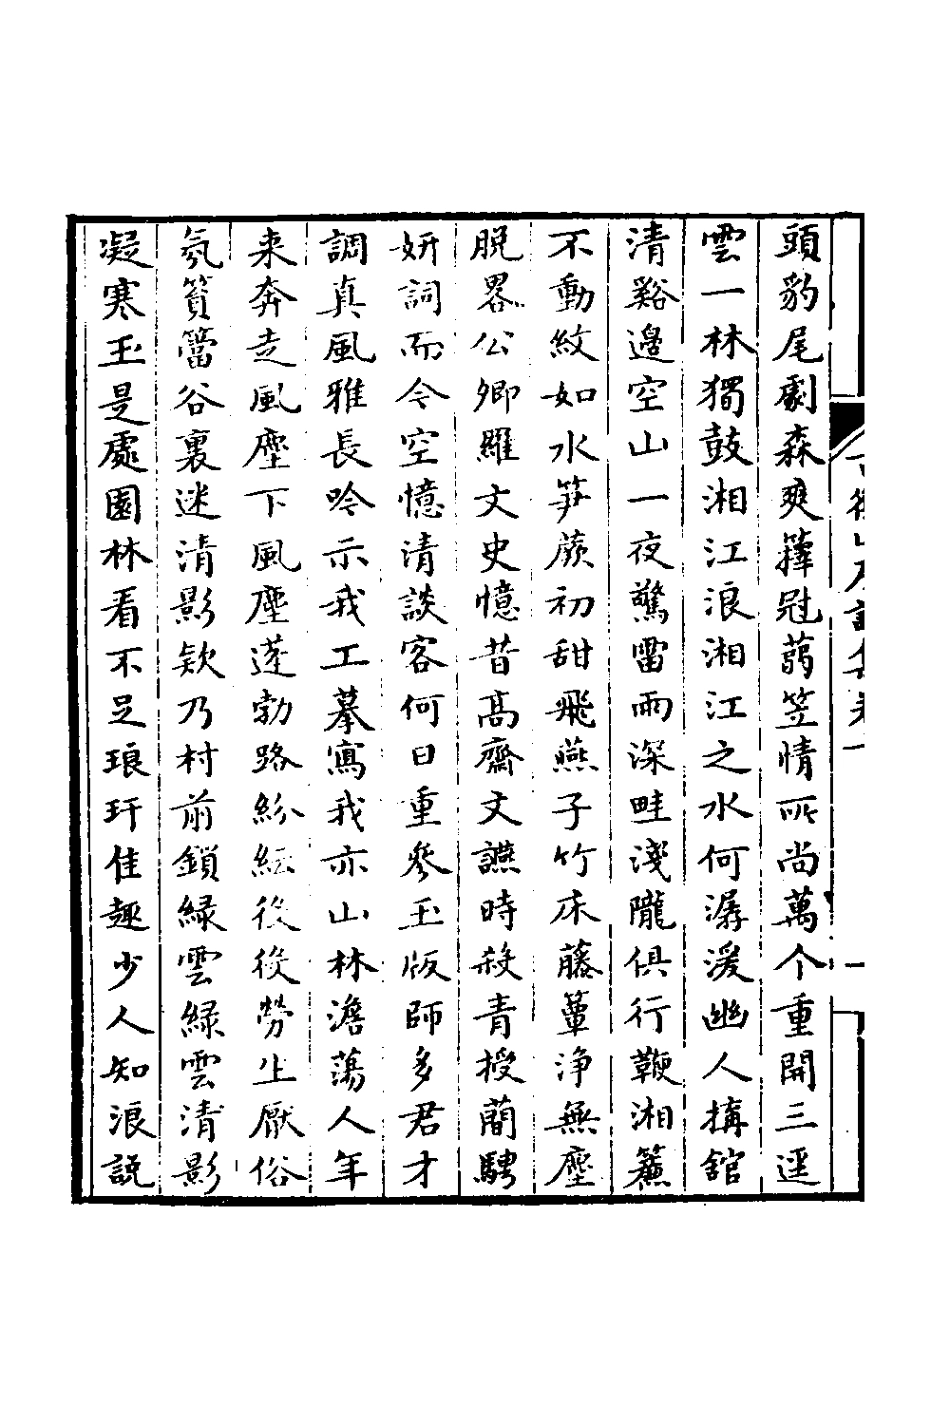 頭豹尾劇森爽籜冠蒻笠情所尚萬个重開三逕
雲一林獨鼓湘江浪湘江之水何潺湲幽人構館
清谿邊空山一夜驚雷雨深畦淺隴俱行鞭湘簾
不動紋如水笋蕨初甜飛燕子竹床藤簟淨無塵
脫畧公卿羅文史憶昔髙齋文讌時殺青授蕳騁
妍詞而今空憶清談客何日重參玉版師多君才
調真風雅長吟示我工摹寫我亦山林澹蕩人年
来奔走風塵下風塵蓬勃路紛紜後後勞生厭俗
氛篔簹谷裏迷清影欵乃村前鎖緑雲緑雲清影
凝寒玉是處園林看不足琅玕佳趣少人知浪説